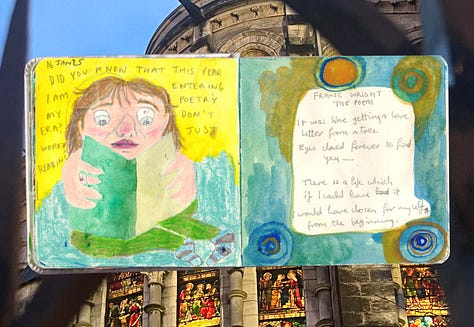 16 JAN 25
DID YOU KNOW THAT THIS YEAR
I AM ENTERING
MY POETRY
ERA? DON'T
WORRY JUST
READING
FRANZ WRIGHT
THE POEM
It was like getting a love
letter from a tree
Eyes closed forever to find
you —
There is a life which
if I could have had it
would have chosen for myself
from the beginning.